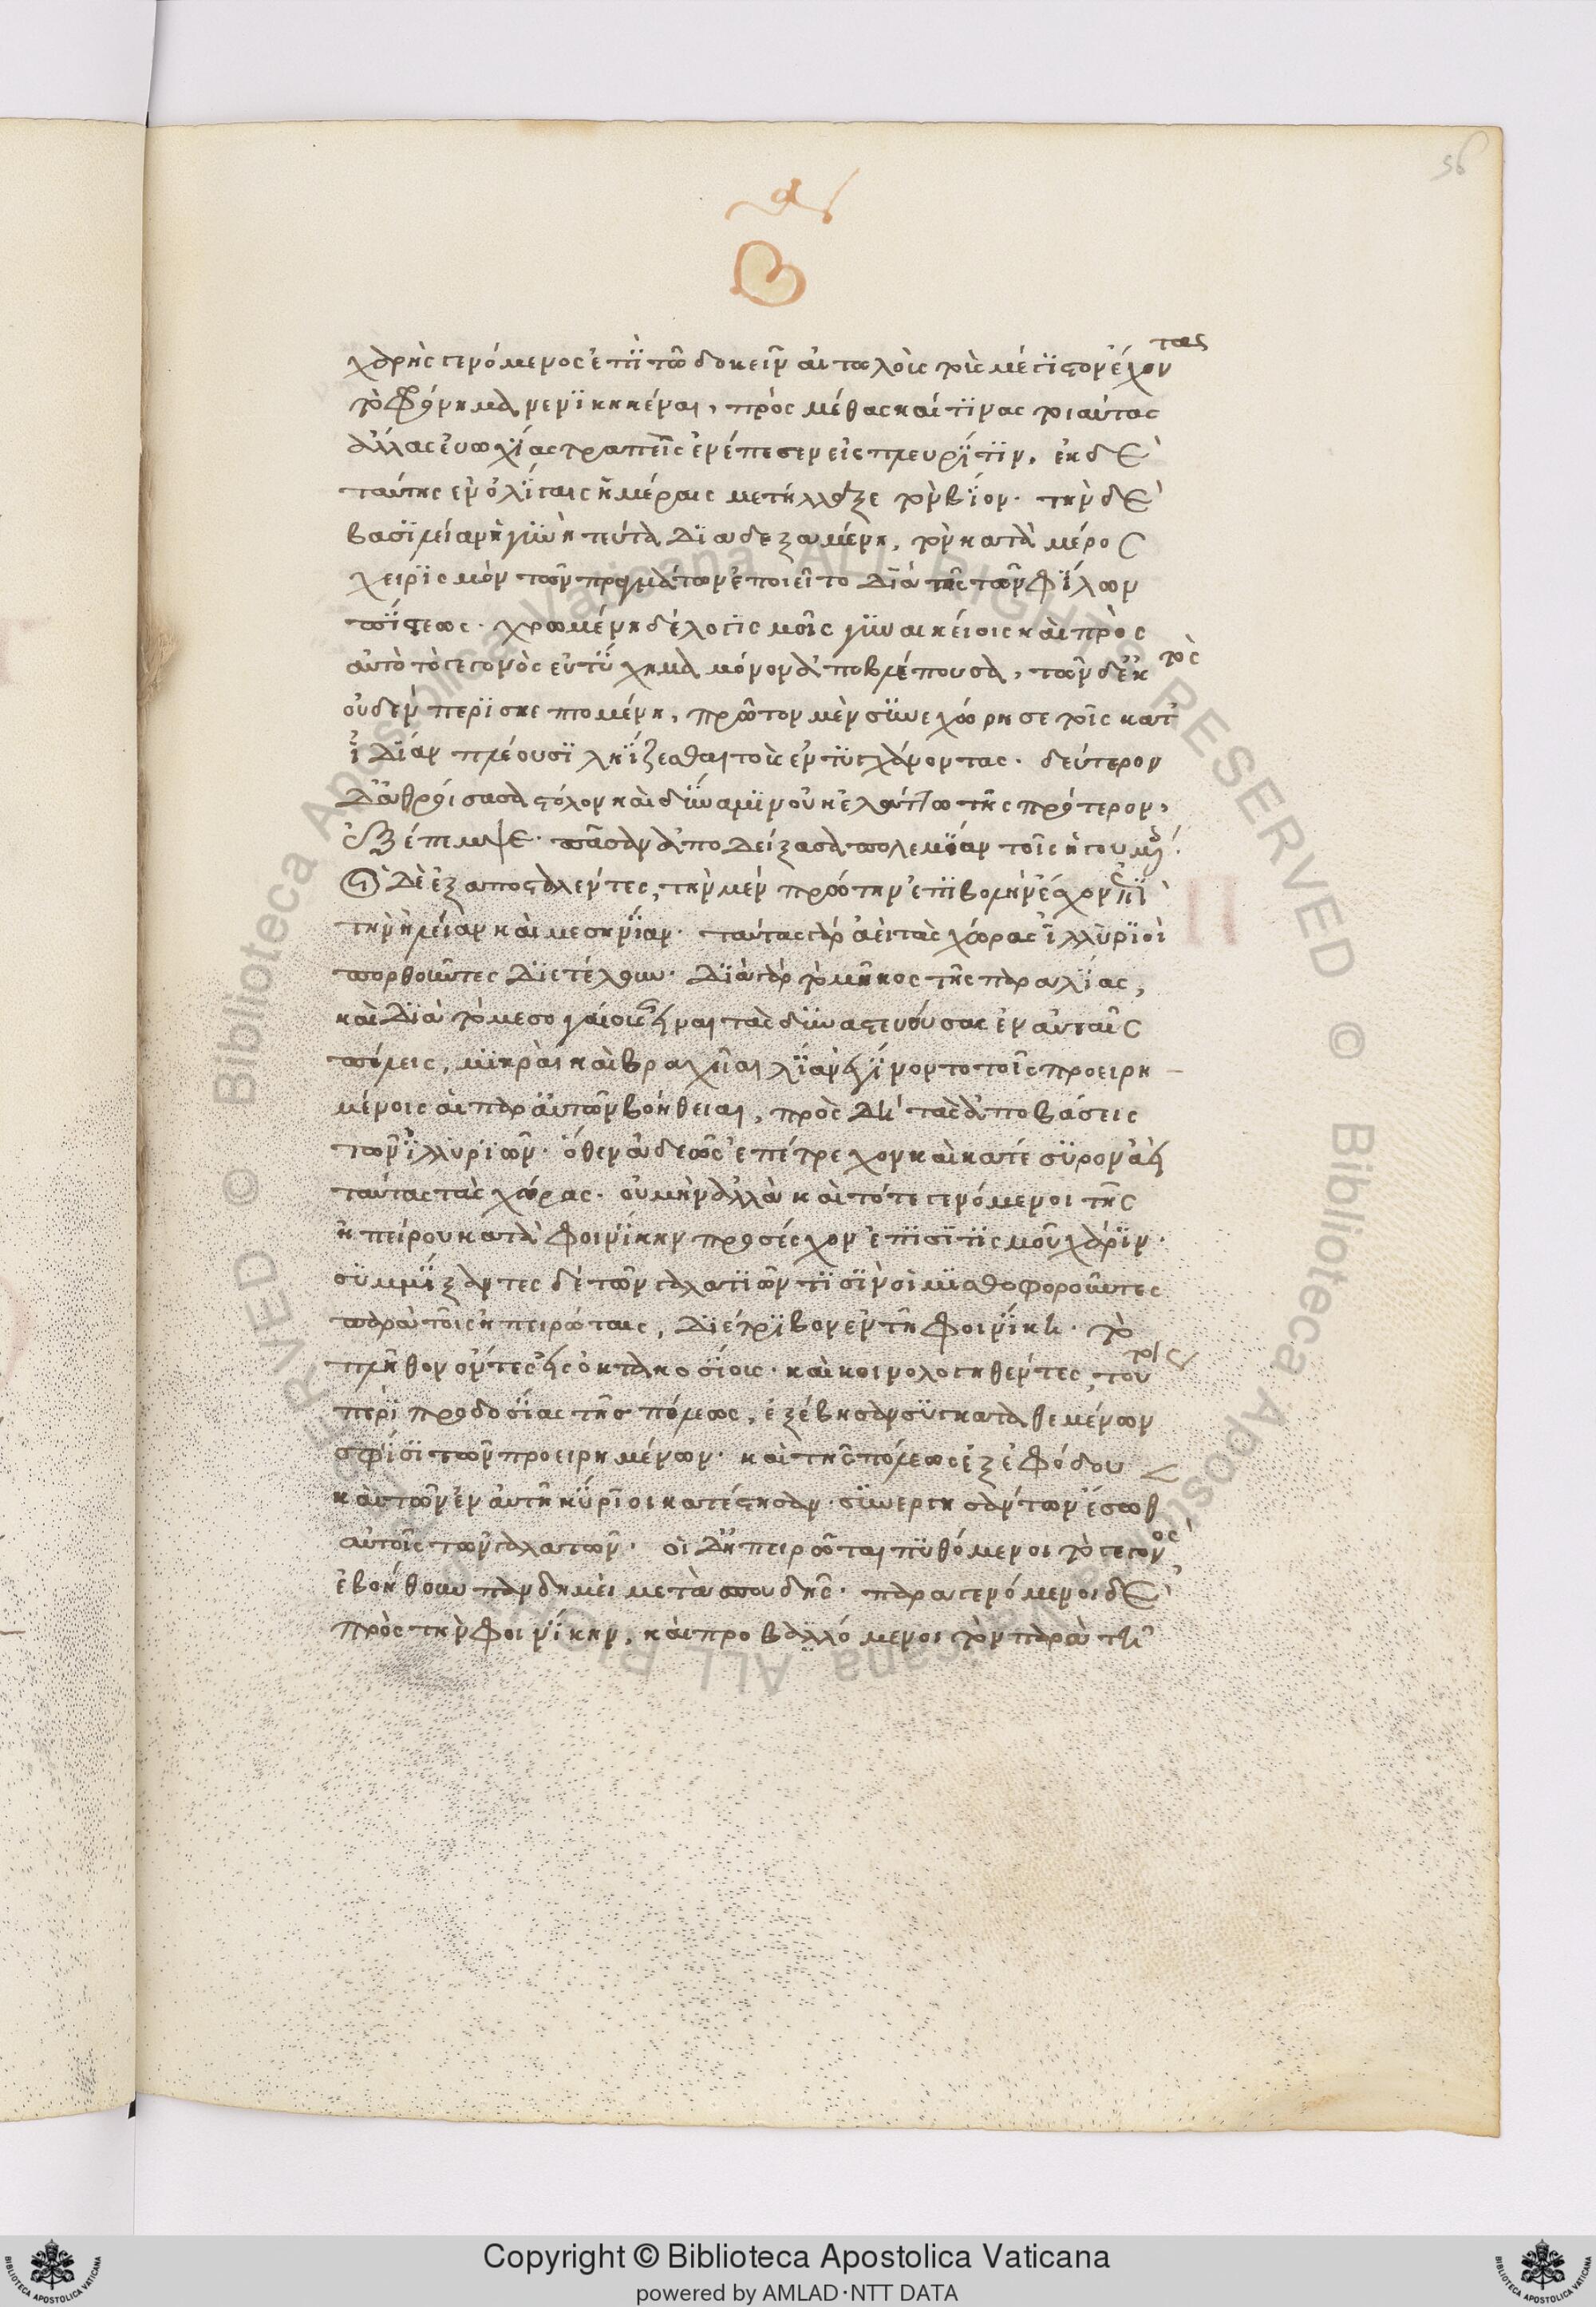 αϛ
Β
χαρὴς γενόμενος ἐπὶ τῶ δοκεῖν αἰτωλοὺς τοὺς μέγιστον ἔχοντας
τὸ φρόνημα νενικηκέναι, πρὸς μέθας καί τινας τοιαύτας
ἄλλας εὐωχίας τραπεὶς ἐνέπεσεν εἰς πλευρίτιν, ἐκ δὲ
ταύτης ἐν ὀλίγαις ἡμέραις μετήλλαξε τὸν βίον· τὴν δὲ
βασιλείαν ἡ γυνὴ τεύτα διαδεξαμένη, τὸν κατὰ μέρος
χειρισμὸν τῶν πραγμάτων ἐποιεῖτο διὰ τῆς τῶν φίλων
πίστεως· χρωμένη δὲ λογισμοῖς γυναικείοις καὶ πρὸς
αὐτὸ τὸ γεγονὸς εὐτύχημα μόνον ἀποβλέπουσα, τῶν δ' ἐκτὸς
οὐδὲν περισκεπτομένη, πρῶτον μὲν συνεχώρησε τοῖς κατ'
ἰδίαν πλέουσι ληΐζεσθαι τοὺς ἐντυγχάνοντας· δεύτερον
δ' ἀθροίσασα στόλον καὶ δύναμιν οὐκ ἐλάττω τῆς πρότερον,
ἐξέπεμψε· πᾶσαν ἀποδείξασα πολεμίαν τοῖς ἡγουμ
οἱ δὲ ἐξαποσταλέντες, τὴν μὲν πρώτην ἐπιβολὴν ἔσχον ἐπὶ
τὴν ἠλείαν καὶ μεσηνίαν· ταύτας γὰρ ἀεὶ τὰς χώρας ἰλλυριοὶ
πορθοῦντες διετέλουν· διὰ γὰρ τὸ μῆκος τῆς παραλίας,
καὶ διὰ τὸ μεσογαίους εἶναι τὰς δυναστευούσας ἐν αὐταῖς
πόλεις, μικραὶ καὶ βραχεῖαι λίαν ἐγίνοντο τοῖς προειρη-
μένοις αἱ παρ' αὐτῶν βοήθειαι, πρὸς δὴ τὰς ἀποβάσεις
τῶν ἰλλυριῶν· ὅθεν ἀδεῶς ἐπέτρεχον καὶ κατέσυρον ἀεὶ
ταύτας τὰς χώρας· οὐ μὴν ἀλλὰ καὶ τότε γενόμενοι τῆς
ἠπείρου κατὰ φοινίκην προσέσχον ἐπισιτισμοῦ χάριν·
συμμίξαντες δὲ τῶν γαλατῶν τισὶν οἳ μισθοφοροῦντες
παρὰ τοῖς ἠπειρώταις, διέτριβον ἐν τῆ φοινίκη· τὸ
πλῆθον ὄντες εἰς ὀκτακοσίοις· καὶ κοινολογηθέντες τούτοις
περὶ προδοσίας τῆς πόλεως, ἐξέβησαν συγκαταθεμένων
σφίσι τῶν προειρημένων· καὶ τῆς πόλεως ἐξ ἐφόδου
καὶ τῶν ἐν αὐτῆ κύριοι κατέστησαν· συνεργησάντων ἔσωθ
αὐτοῖς τῶν γαλατῶν· οἱ δ' ἠπειρῶται πυθόμενοι τὸ γεγονός,
ἐβοήθουν πανδημεὶ μετὰ σπουδῆς· παραγενόμενοι δὲ
πρὸς τὴν φοινίκην, καὶ προβαλλόμενοι τὸν παρὰ τὴν
Copyright © Biblioteca Apostolica Vaticana
powered by AMLAD·NTT DATA